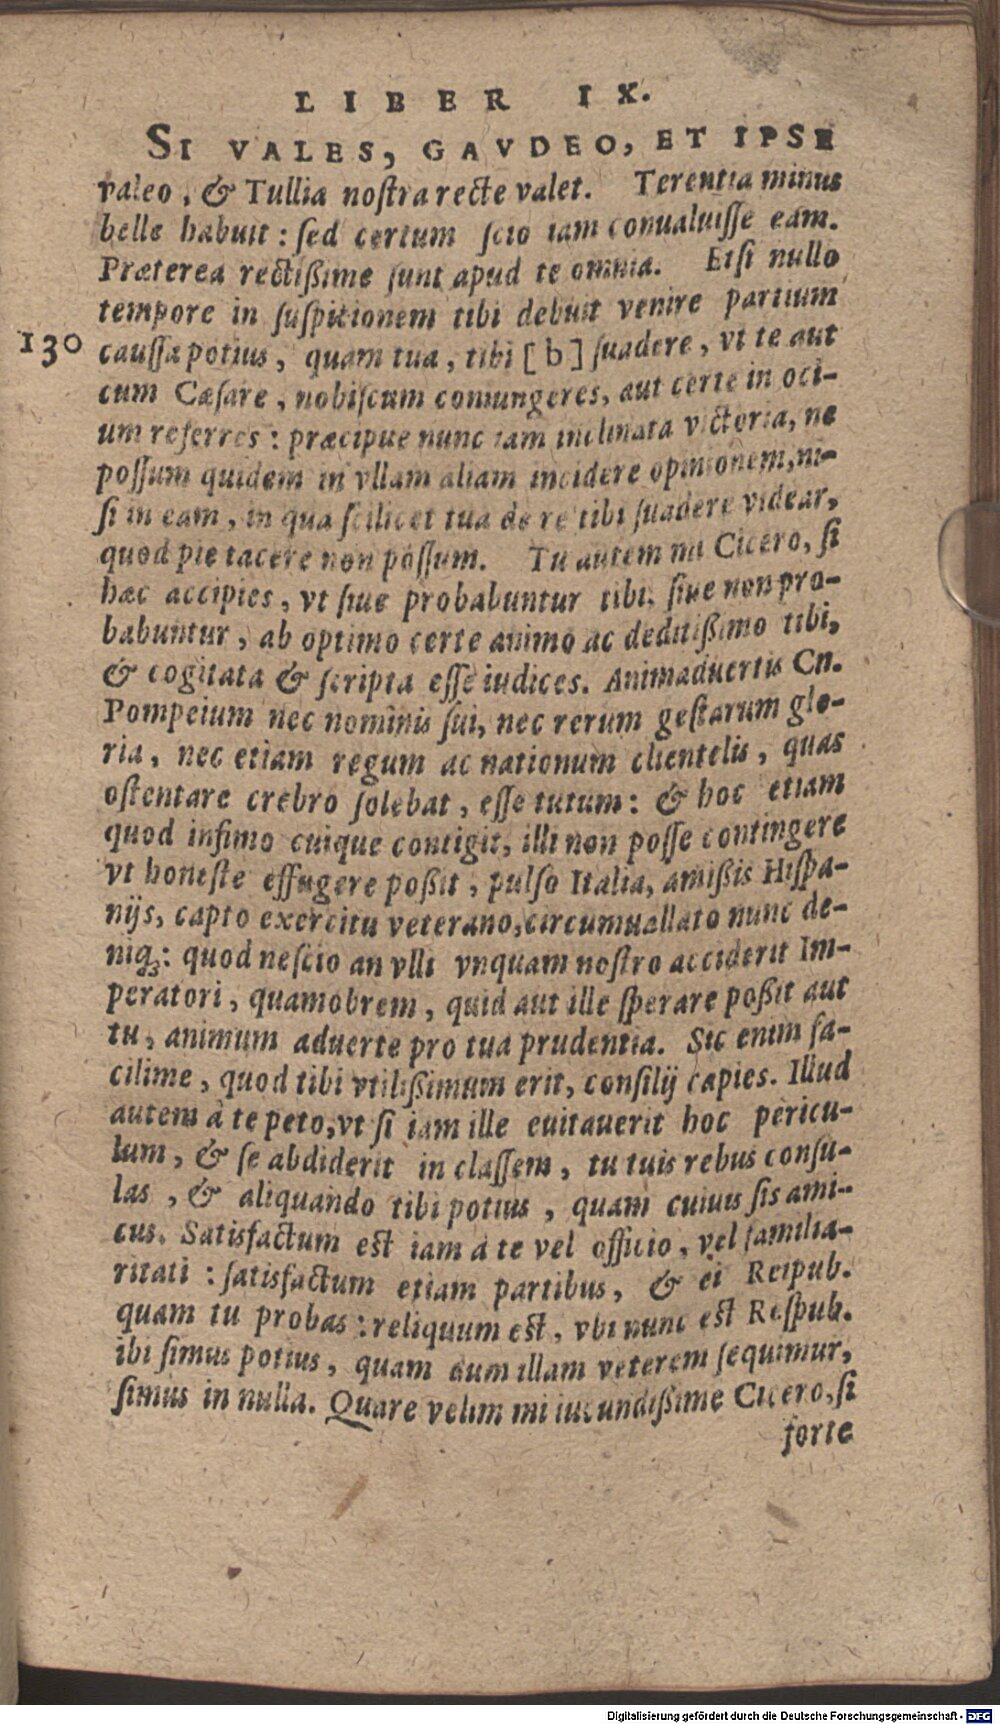 LIBER IX.
SI VALES, GAVDEO, ET IPSE
valeo, & Tullia nostra recte valet. Terentia minus
belle habuit: sed certum scio iam conualuisse eam.
Præterea rectißime sunt apud te omnia. Etsi nullo
tempore in suspitionem tibi debuit venire partium
130 caussa potius, quam tua, tibi [b] suadere, vt te aut
cum Cæsare, nobiscum coniungeres, aut certe in oci-
um referres: præcipue nunc iam inclinata victoria, ne
possum quidem in vllam aliam incidere opinionem, ni-
si in eam, in qua scilicet tua de re tibi suadere videar,
quod pie tacere non possum. Tu autem mi Cicero, si
hæc accipies, vt siue probabuntur tibi, siue non pro-
babuntur, ab optimo certe animo ac deditißimo tibi,
& cogitata & scripta esse iudices. Animaduertis Cn.
Pompeium nec nominis sui, nec rerum gestarum glo-
ria, nec etiam regum ac nationum clientelis, quas
ostentare crebro solebat, esse tutum: & hoc etiam
quod infimo cuique contigit, illi non posse contingere
vt honeste effugere poßit, pulso Italia, amißis Hispa-
nijs, capto exercitu veterano, circumuallato nunc de-
niq;: quod nescio an vlli vnquam nostro acciderit Im-
peratori, quamobrem, quid aut ille sperare poßit aut
tu, animum aduerte pro tua prudentia. Sic enim fa-
cilime, quod tibi vtilißimum erit, consilij capies. Illud
autem à te peto, vt si iam ille euitauerit hoc pericu-
lum, & se abdiderit in classem, tu tuis rebus consu-
las, & aliquando tibi potius, quam cuiuis sis ami-
cus. Satisfactum est iam à te vel officio, vel familia-
ritati: satisfactum etiam partibus, & ei Reipub.
quam tu probas: reliquum est, vbi nunc est Respub.
ibi simus potius, quam dum illam veterem sequimur,
simus in nulla. Quare velim mi iucundißime Cicero, si
forte
Digitalisierung gefördert durch die Deutsche Forschungsgemeinschaft - DFG